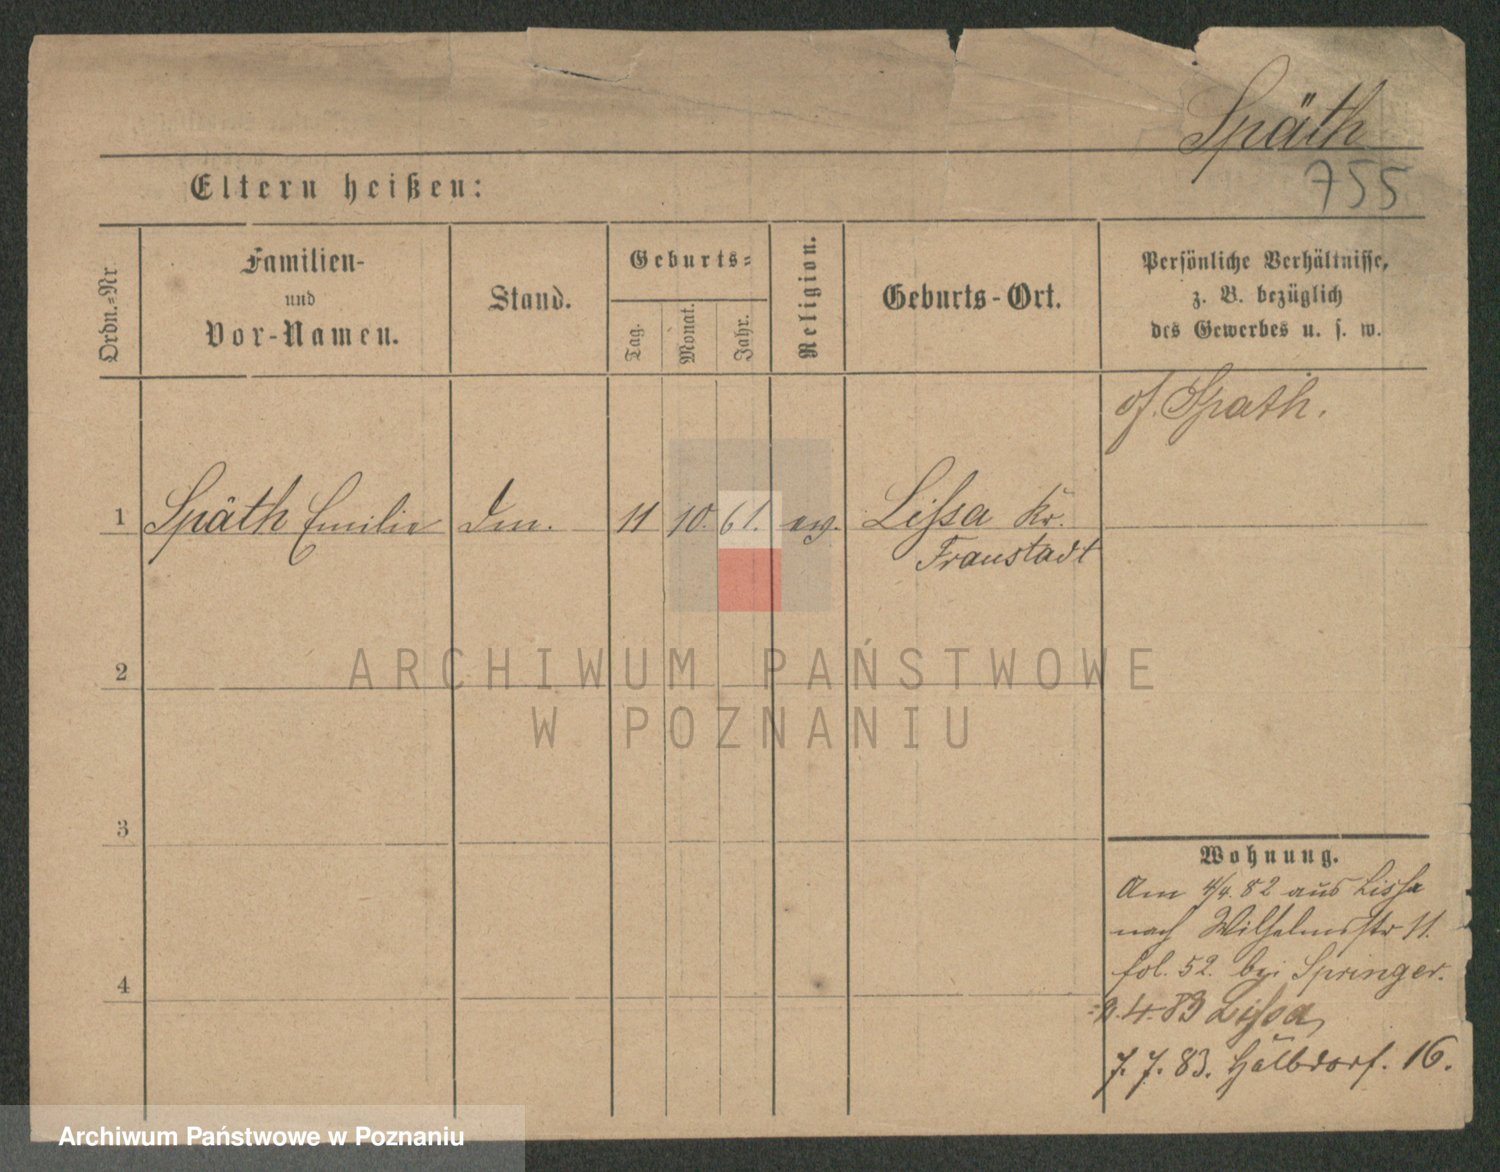 Späth
755
Eltern heißen:
Ordn.-Nr
Familien-
und
Vor-Namen.
Stand.
Geburts-
Tag.
Monat.
Jahr.
Religion.
Geburts-Ort.
Persönliche Verhältnisse,
z. B. bezüglich
des Gewerbes u. s. w.
cf. Späth.
1 Späth Emilie 11 10. 61. ev. Lissa Kr.
Fraustadt
2
3
4
Wohnung.
Am 4/4. 82 aus Lissa
nach Wilhelmsstr 11.
fol. 52. bei Springer.
4. 83 Lissa
7. 7. 83. Halbdorf. 16.
ARCHIWUM PAŃSTWOWE
W POZNANIU
Archiwum Państwowe w Poznaniu